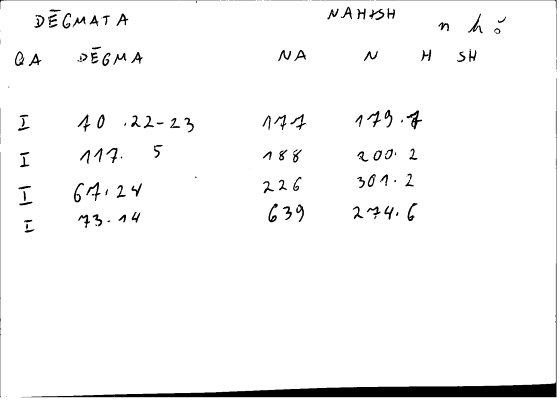 DĒGMATA NAHASH n h ŏ
QA DĒGMA NA N H SH
I 70 .22-23 177 179.7
I 117. 5 188 200.2
I 67.24 226 301.2
I 73.14 639 274.6